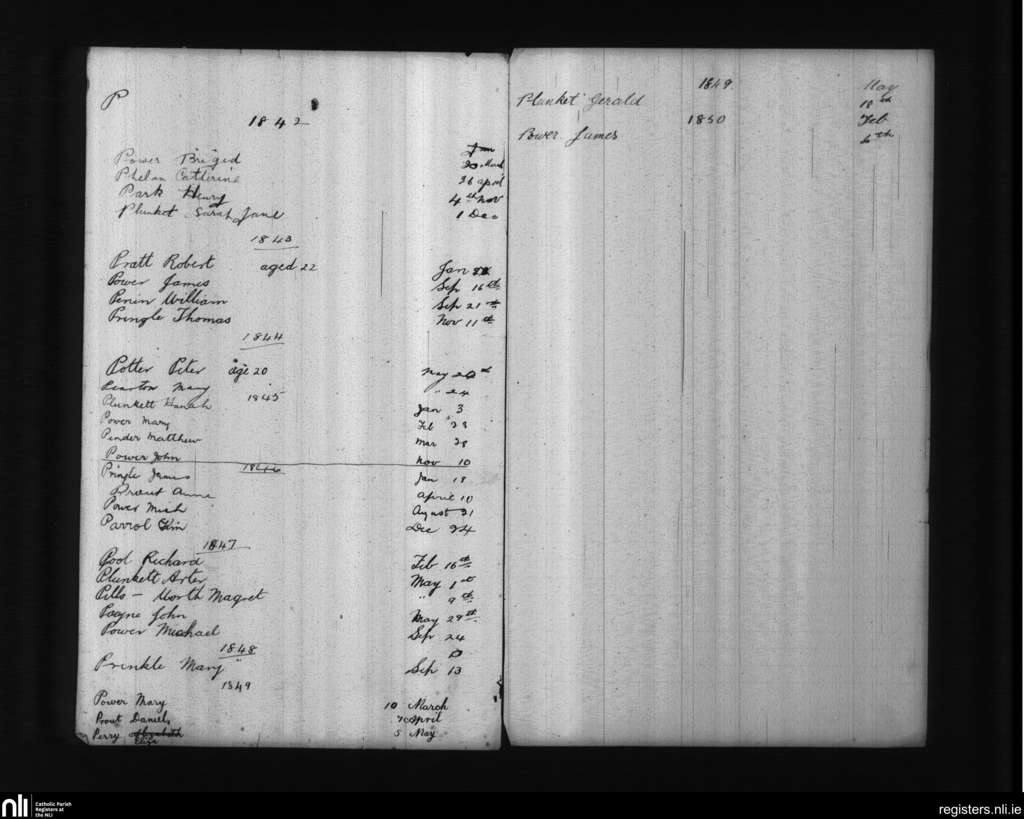 P
1842
Power Briged Jan
Phelan Catterine 20 March
Park Henry 26 april
Plunket Sarah Jane 4th Nov
1 Dec
1843
Pratt Robert aged 22 Jan
Power James Sep 16th
Penin William Sep 21th
Pringle Thomas Nov 11th
1844
Potter Peter age 20 May
Mary " 24
1845
Plunkett Hanah Jan 3
Power Mary Feb 23
Pender Matthew Mar 28
Power John Nov 10
1846
Pringle James Jan 18
Prout Anne April 10
Power Mich August 31
Parrol Dec 24
1847
Pool Richard Feb 16th
Plunkett Arter May 1st
Pells - Worth Magret " 9th
Payne John May 29th
Power Michael Sep 24
1848
Prinkle Mary Sep 13
1849
Power Mary 10 March
Prout Daniel April
Perry Eliza 5 May
1849. May
Plunket Gerald 18th
1850 Feb
Power James 6th
nli Catholic Parish
Registers at
the NLI
registers.nli.ie